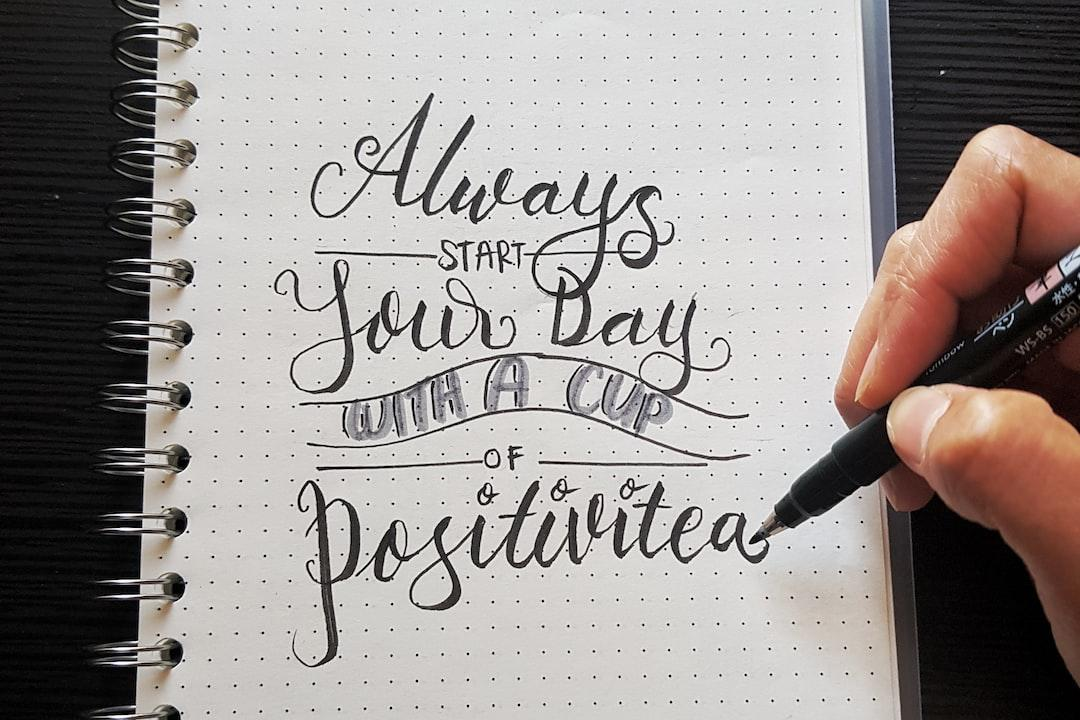 Always
START
Your Day
WITH A CUP
OF
Positivitea
WS-BS 150